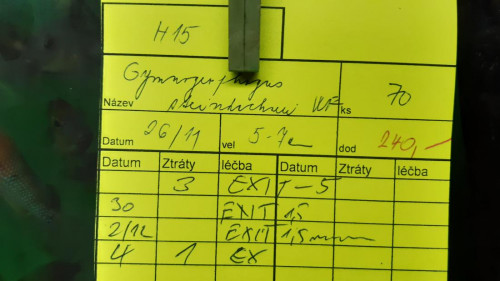 H15
Gymnogeophagus
Název steindachneri WF ks 70
Datum 26/11 vel 5-7cm dod 240,-
Datum Ztráty léčba Datum Ztráty léčba
3 EXIT-5
30 EXIT 1,5
2/12 EXIT 1,5
4 1 EX